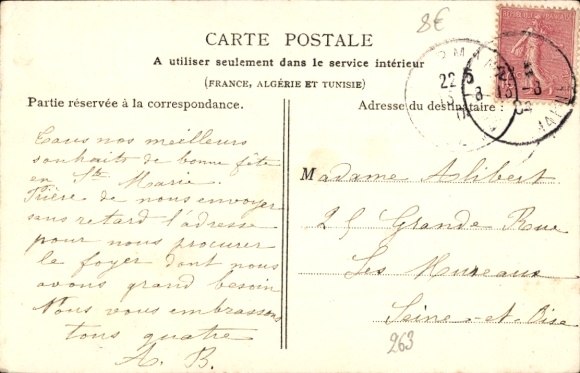 8€
CARTE POSTALE
A utiliser seulement dans le service intérieur
(FRANCE, ALGÉRIE ET TUNISIE)
Partie réservée à la correspondance.
Adresse du destinataire :
Tous nos meilleurs
souhaits de bonne fête
en Ste Marie.
Prière de nous envoyer
sans retard l'adresse
pour nous procurer
le foyer dont nous
avons grand besoin
Nous vous embrassons
tous quatre
A. B.
Madame Alibert
25 Grande Rue
Les Mureaux
Seine-et-Oise
263